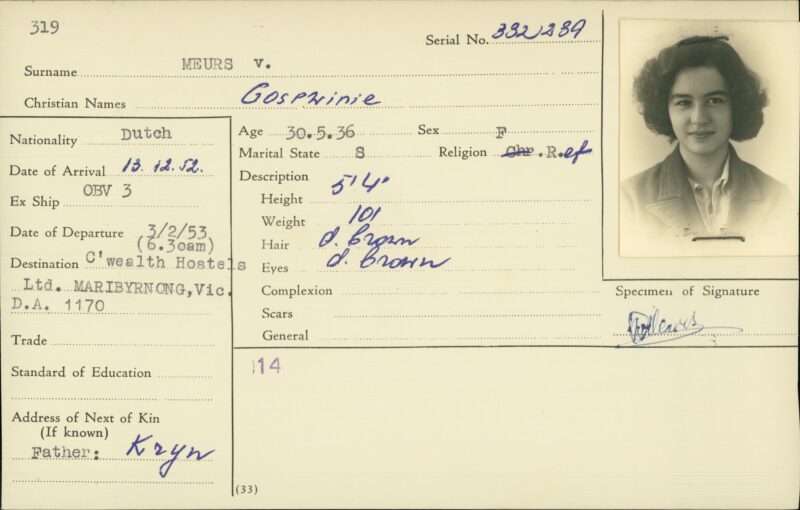 319
Serial No. 332239
Surname MEURS v.
Christian Names Gosewinie
Nationality Dutch
Date of Arrival 13.12.52.
Ex Ship OBV 3
Date of Departure 3/2/53
(6.30am)
Destination C'wealth Hostels
Ltd. MARIBYRNONG,Vic.
D.A. 1170
Trade
Standard of Education
Address of Next of Kin
(If known)
Father: Kryn
Age 30.5.36 Sex F
Marital State S Religion Chr.R.ef
Description
Height 5'4"
Weight 101
Hair d. brown
Eyes d. brown
Complexion
Scars
General
114
(33)
Specimen of Signature